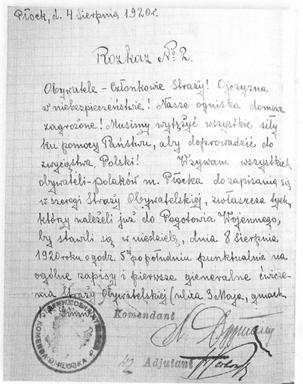 Płock, d. 4 Sierpnia 1920 r.
Rozkaz № 2.
Obywatele - Członkowie Straży! Ojczyzna
w niebezpieczeństwie! Nasze ogniska domowe
zagrożone! Musimy wytężyć wszystkie siły
ku pomocy Państwu, aby doprowadzić do
zwycięstwa Polski! Wzywam wszystkich
obywateli-polaków m. Płocka do zapisania się
w szeregi Straży Obywatelskiej, zwłaszcza tych,
którzy należeli już do Pogotowia Wojennego,
by stawili się w niedzielę, dnia 8 Sierpnia
1920 roku o godz. 5 po południu punktualnie na
ogólne zapisy i pierwsze gieneralne ćwicze-
nia Straży Obywatelskiej (ulica 3 Maja, gmach
Komendant
Adjutant